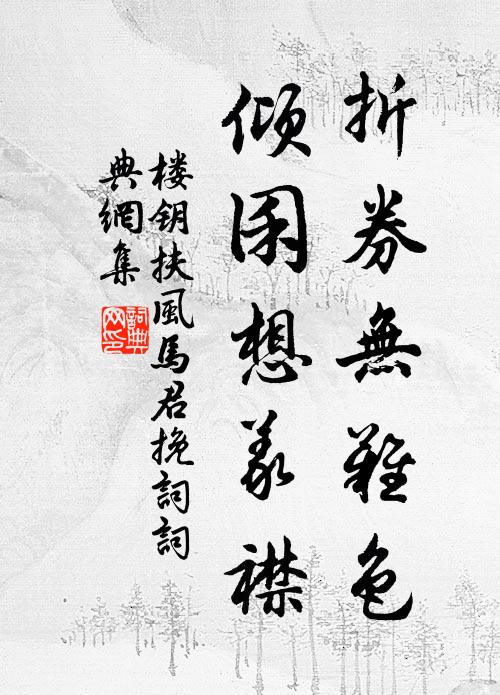 折券無難色
傾囷想義襟
楼钥扶風馬君挽詞詞
典網集
詞典
网印